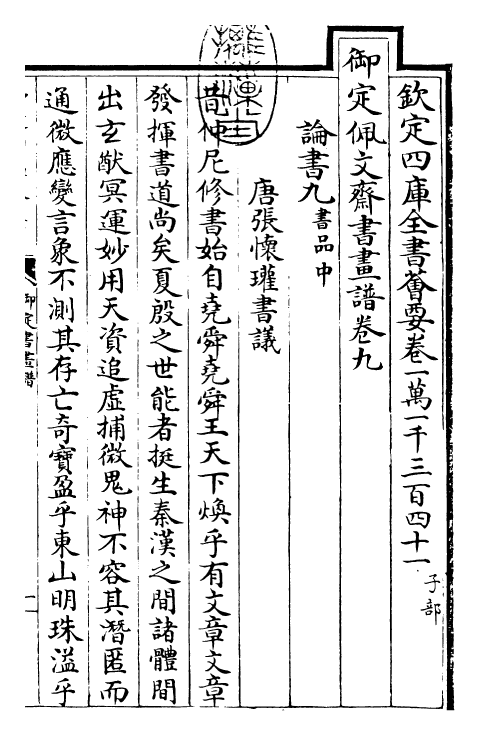 欽定四庫全書薈要卷一萬一千三百四十一 子部
御定佩文齋書畫譜卷九
論書九 書品中
唐張懷瓘書議
昔仲尼修書始自堯舜堯舜王天下煥乎有文章文章
發揮書道尚矣夏殷之世能者挺生秦漢之間諸體間
出玄猷冥運妙用天資追虛捕微鬼神不容其潛匿而
通微應變言象不測其存亡奇寶盈乎東山明珠溢乎
御定書畫譜
一